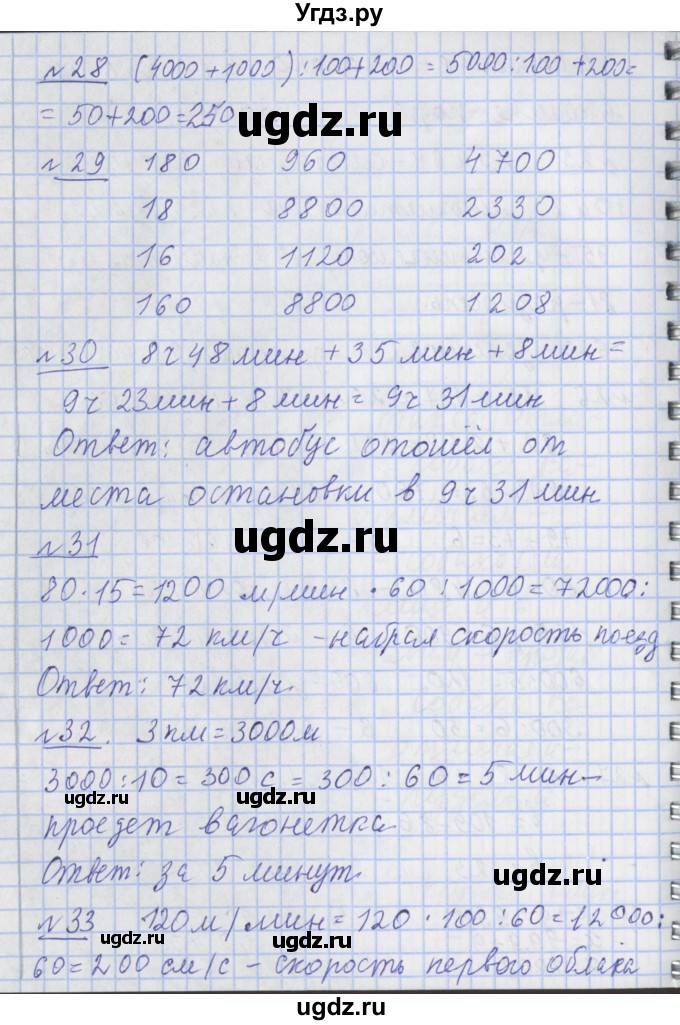 Угдз.ру
№28 (4000+1000):100+200=5000:100+200=
=50+200=250
ugdz.ru
№29 180 960 4700
18 8800 2330
16 1120 202
160 8800 1208
№30 8ч48мин+35мин+8мин=
9ч23мин+8мин=9ч31мин
Ответ: автобус отошёл от
места остановки в 9ч31мин
№31 ugdz.ru
80·15=1200 м/мин·60:1000=72000:
1000=72 км/ч -набрал скорость поезд
Ответ: 72км/ч.
№32. 3км=3000м
3000:10=300с=300:60=5мин-
ugdz.ru ugdz.ru
проедет вагонетка
Ответ: за 5минут.
ugdz.ru
№33 120м/мин=120·100:60=12000:
ugdz.ru ugdz.ru
60=200см/с-скорость первого облака
ugdz.ru